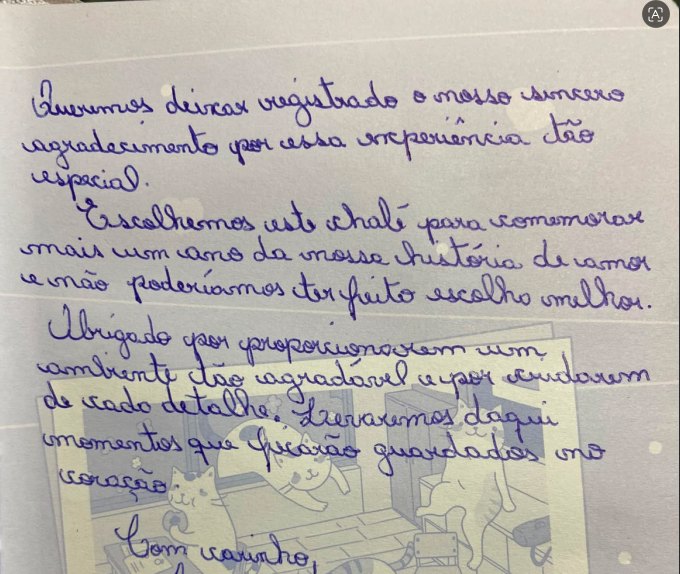 Queremos deixar registrado o nosso sincero
agradecimento por essa experiência tão
especial.
Escolhemos este chalé para comemorar
mais um ano da nossa história de amor
e não poderíamos ter feito escolha melhor.
Obrigado por proporcionarem um
ambiente tão agradável e por cuidarem
de cada detalhe. Levaremos daqui
momentos que ficarão guardados no
coração.
Com carinho,